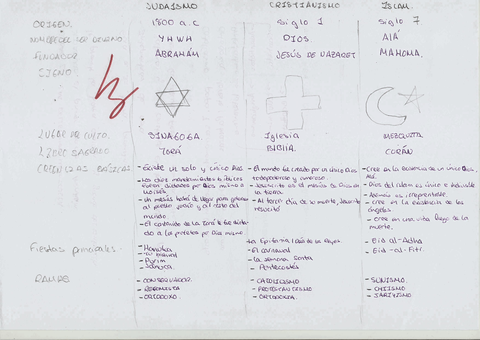 JUDAISMO CRISTIANISMO ISLAM.
ORIGEN. 1800 a.c Siglo 1 Siglo 7.
NOMBRE DEL SER DIVINO YHWH DIOS. ALÁ
FUNDADOR ABRAHAM JESÚS DE NAZARET MAHOMA.
SIGNO
LUGAR DE CULTO. SINAGOGA Iglesia MEZQUITA
LIBRO SAGRADO TORÁ BIBLIA. CORÁN
CREENCIAS BÁSICAS
- Existe un solo y único Dios
- Los diez mandamientos bíblicos fueron dictados por Dios mismo a
- Un mesías habrá de llegar para
al pueblo judío y al resto del
mundo
- El contenido de la Torá fue
a los profetas por Dios mismo.
- El mundo fue creado por un único Dios
todopoderoso y amoroso.
- Jesucristo es el mesías de Dios en
la tierra.
- Al tercer día de la muerte, Jesucristo
resucitó
- Cree en la existencia de un único Dios,
Alá.
- Dios del islam es único e
- Además es irrepresentable.
- cree en la existencia de los
ángeles.
- cree en una vida luego de la
muerte.
Fiestas principales.
- Purim
- La Epifanía / día de los Reyes
- El carnaval
- La semana santa
- Pentecostés
- Eid al-Adha
- Eid-al-Fitr
RAMAS
- CONSERVADOR.
- REFORMISTA
- ORTODOXO.
- CATOLICISMO
- PROTESTANTISMO
- ORTODOXIA.
- SUNISMO.
- CHIISMO
- JARIYISMO